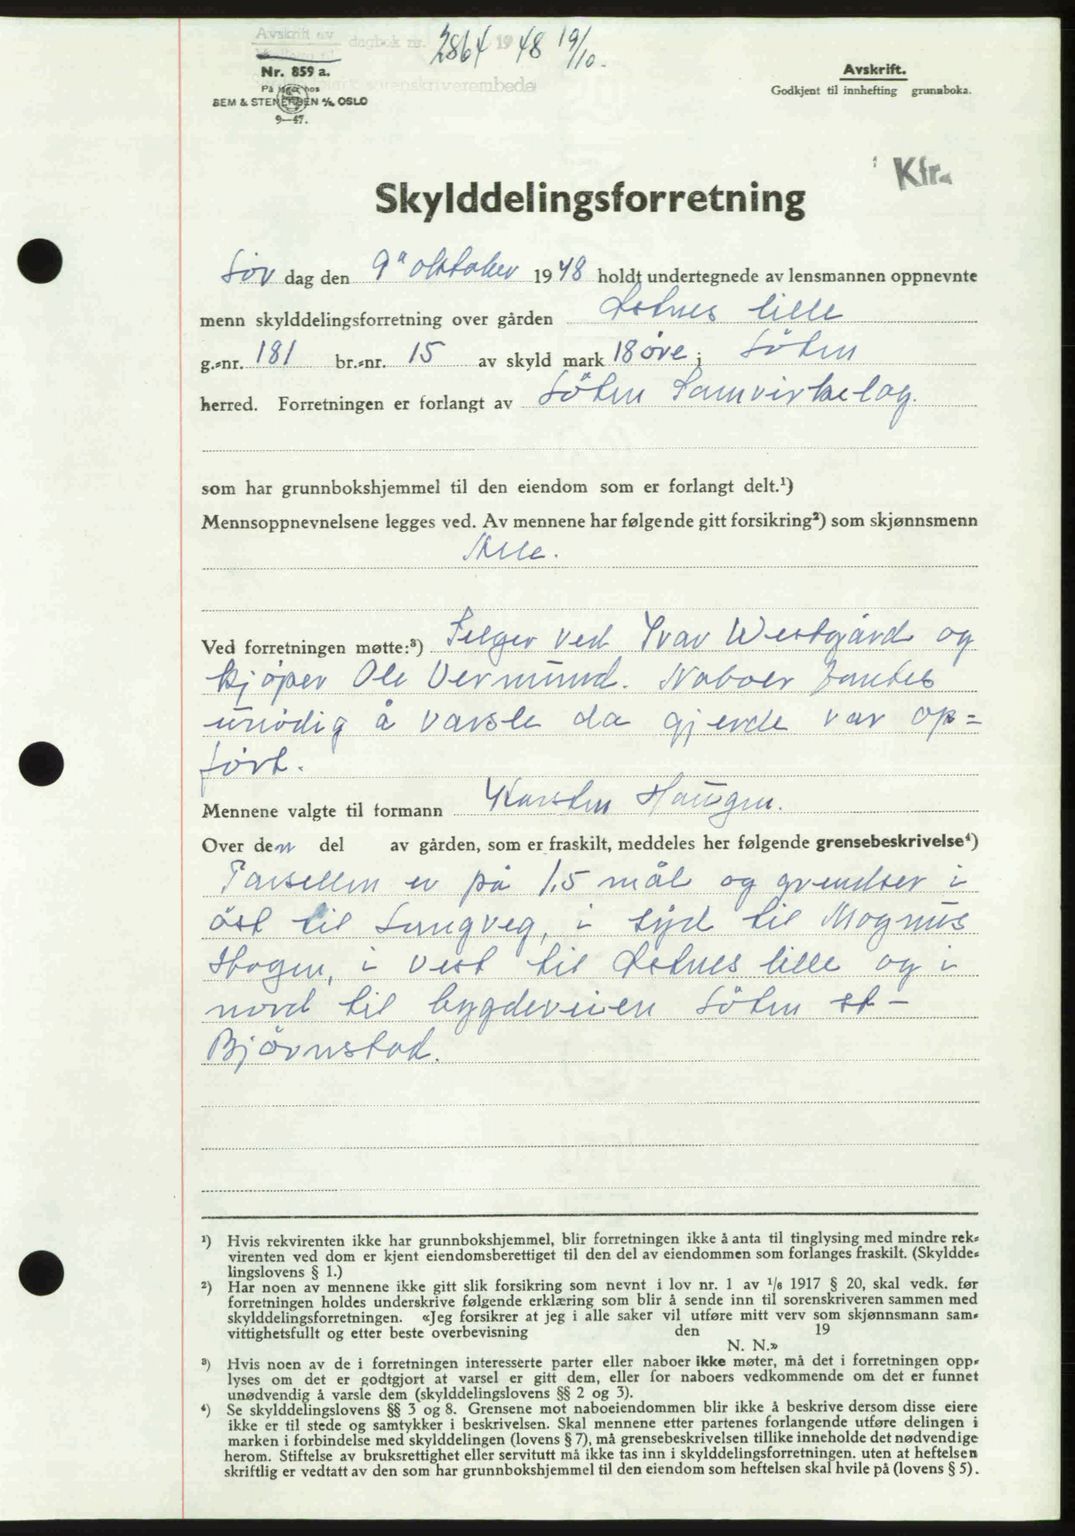 Avskrift av
dagbok nr. 2864 1948 19/10.
sorenskriverembede
Nr. 859 a.
På lager hos
SEM & STENERSEN A/S, OSLO
9—47.
Avskrift.
Godkjent til innhefting grunnboka.
Kfr.
Skylddelingsforretning
Lör dag den 9ª oktober 1948 holdt undertegnede av lensmannen oppnevnte
menn skylddelingsforretning over gården Lstnes lille
g.-nr. 181 br.-nr. 15 av skyld mark 18 öre i Löten
herred. Forretningen er forlangt av Löten Samvirkelag.
som har grunnbokshjemmel til den eiendom som er forlangt delt.¹)
Mennsoppnevnelsene legges ved. Av mennene har følgende gitt forsikring²) som skjønnsmenn
Alle.
Ved forretningen møtte:³) Selger ved Ivar Westgård og
kjöper Ole Vermund. Naboer fantes
unödig å varsle da gjerde var op=
fört.
Mennene valgte til formann Karsten Haugen.
Over den del av gården, som er fraskilt, meddeles her følgende grensebeskrivelse⁴)
Parsellen er på 1,5 mål og grendser i
öst til Lungveg, i syd til Magnus
Hagen, i vest til Lstnes lille og i
nord til bygdeveien Löten st –
Björnstad.
¹) Hvis rekvirenten ikke har grunnbokshjemmel, blir forretningen ikke å anta til tinglysing med mindre rek-
virenten ved dom er kjent eiendomsberettiget til den del av eiendommen som forlanges fraskilt. (Skyldde-
lingslovens § 1.)
²) Har noen av mennene ikke gitt slik forsikring som nevnt i lov nr. 1 av 1/6 1917 § 20, skal vedk. før
forretningen holdes underskrive følgende erklæring som blir å sende inn til sorenskriveren sammen med
skylddelingsforretningen. «Jeg forsikrer at jeg i alle saker vil utføre mitt verv som skjønnsmann sam-
vittighetsfullt og etter beste overbevisning den 19
N. N.»
³) Hvis noen av de i forretningen interesserte parter eller naboer ikke møter, må det i forretningen opp-
lyses om det er godtgjort at varsel er gitt dem, eller for naboers vedkommende om det er funnet
unødvendig å varsle dem (skylddelingslovens §§ 2 og 3).
⁴) Se skylddelingslovens §§ 3 og 8. Grensene mot naboeiendommen blir ikke å beskrive dersom disse eiere
ikke er til stede og samtykker i beskrivelsen. Skal mennene etter partenes forlangende utføre delingen i
marken i forbindelse med skylddelingen (lovens § 7), må grensebeskrivelsen tillike inneholde det nødvendige
herom. Stiftelse av bruksrettighet eller servitutt må ikke tas inn i skylddelingsforretningen. uten at heftelsen
skriftlig er vedtatt av den som har grunnbokshjemmel til den eiendom som heftelsen skal hvile på (lovens § 5).